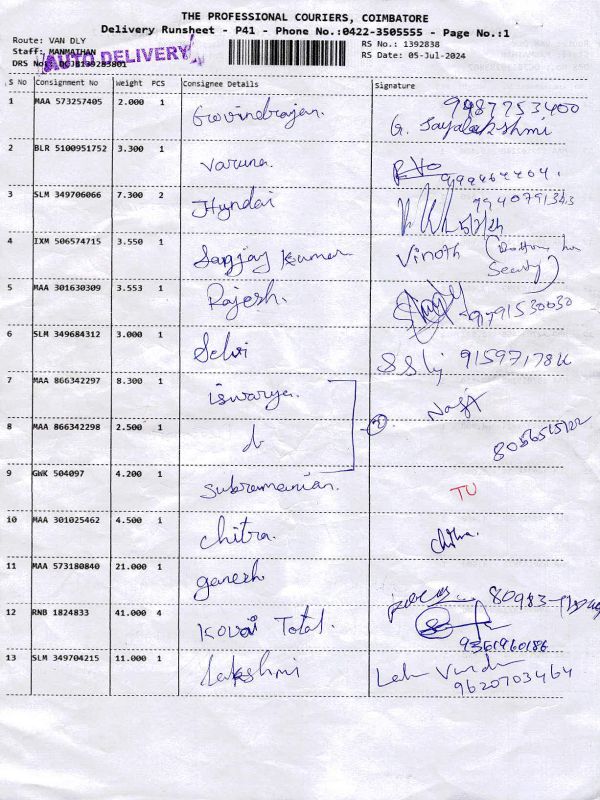 THE PROFESSIONAL COURIERS, COIMBATORE
Delivery Runsheet - P41 - Phone No.:0422-3505555 - Page No.:1
Route: VAN DLY
RS No.: 1392838
Staff: MANMATHAN
RS Date: 05-Jul-2024
AUTO DELIVERY
DRS No:
S No Consignment No Weight PCS Consignee Details Signature
1 MAA 573257405 2.000 1 Govindrajan. G. Jayalakshmi
2 BLR 5100951752 3.300 1 Varuna.
3 SLM 349706066 7.300 2 Hyundai 9940791343
4 IXM 506574715 3.550 1 Sanjay Kumar Vinoth
Security)
5 MAA 301630309 3.553 1 Rajesh. 9791530030
6 SLM 349684312 3.000 1 Selvi
7 MAA 866342297 8.300 1 iswarya.
8 MAA 866342298 2.500 1
9 GWK 504097 4.200 1 Subramanian. TU
10 MAA 301025462 4.500 1 Chitra. Chitra.
11 MAA 573180840 21.000 1 ganesh 80983
12 RNB 1824833 41.000 4 Kovai Total. 9361960186
13 SLM 349704215 11.000 1 Lakshmi
9620703464